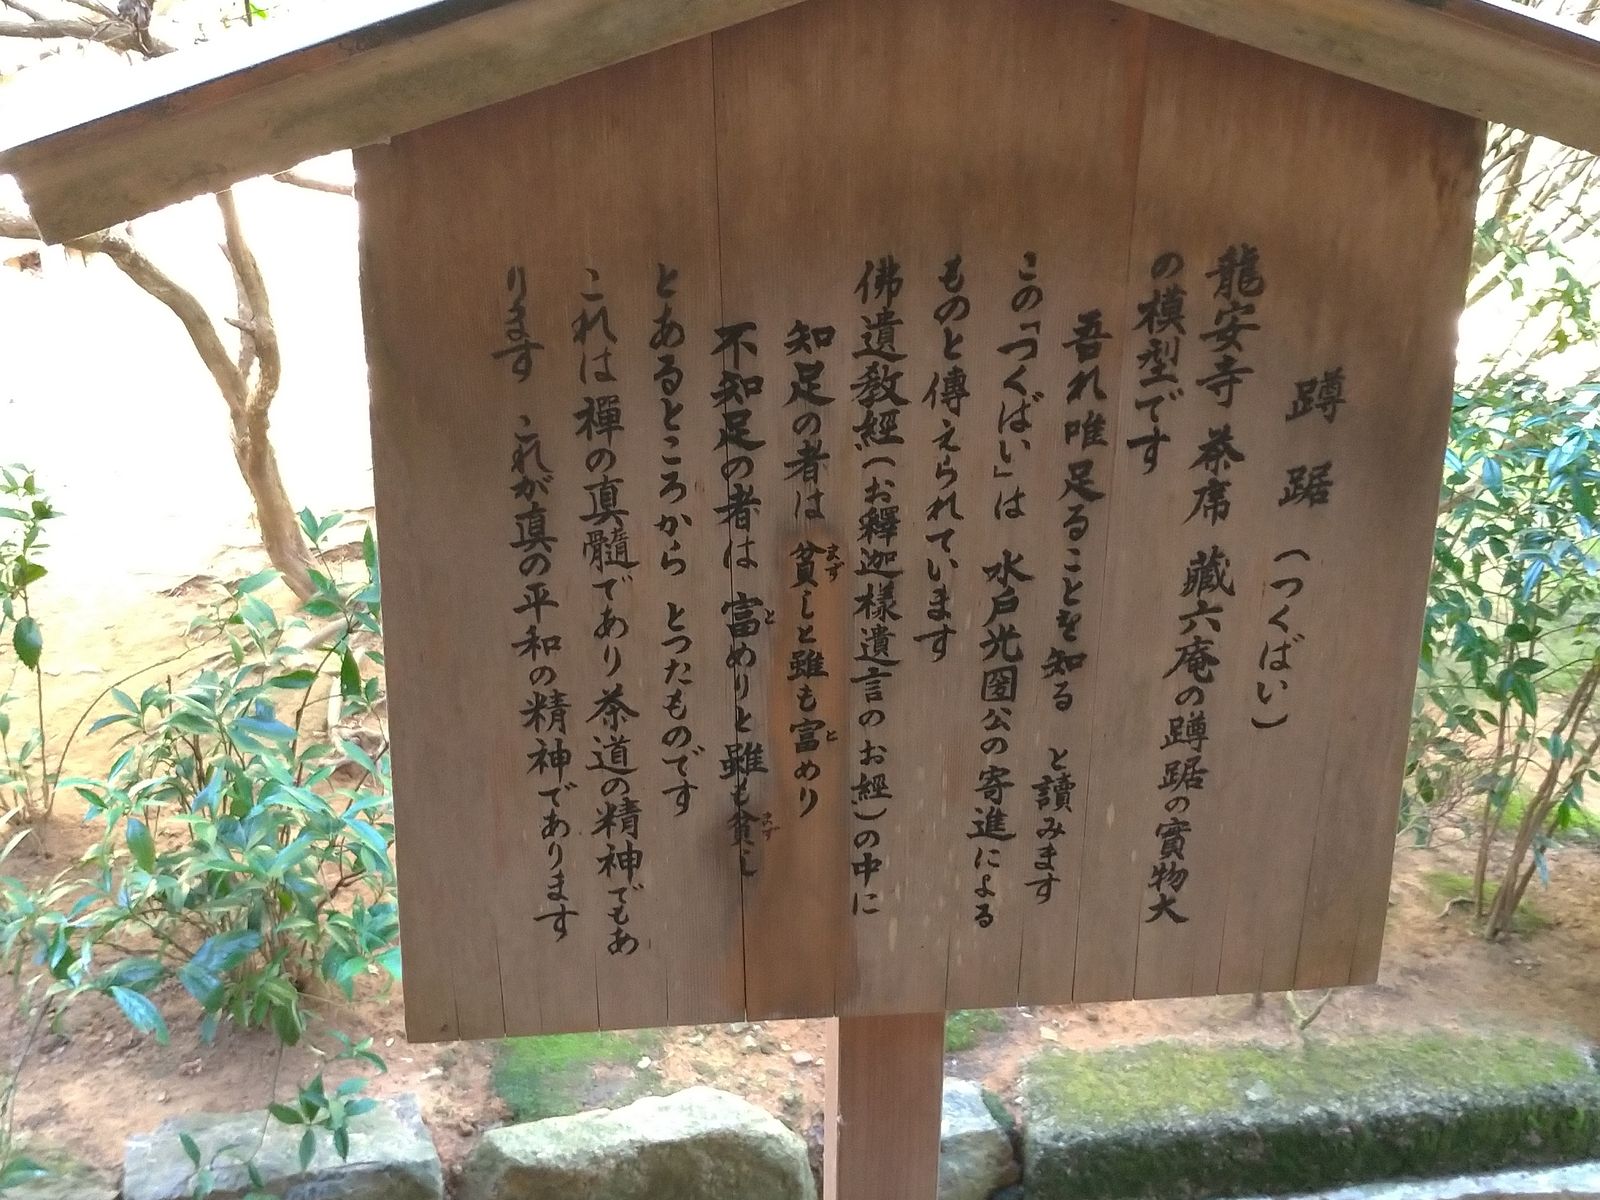 蹲踞（つくばい）
龍安寺 茶席 藏六庵の蹲踞の實物大
の模型です
吾れ唯足ることを知る と讀みます
この「つくばい」は 水戸光圀公の寄進による
ものと傳えられています
佛遺敎經（お釋迦様遺言のお經）の中に
知足の者は 貧しと雖も富めり
まず と
不知足の者は 富めりと雖も貧し
と まず
とあるところから とつたものです
これは禪の真髓であり茶道の精神でもあ
ります これが真の平和の精神であります